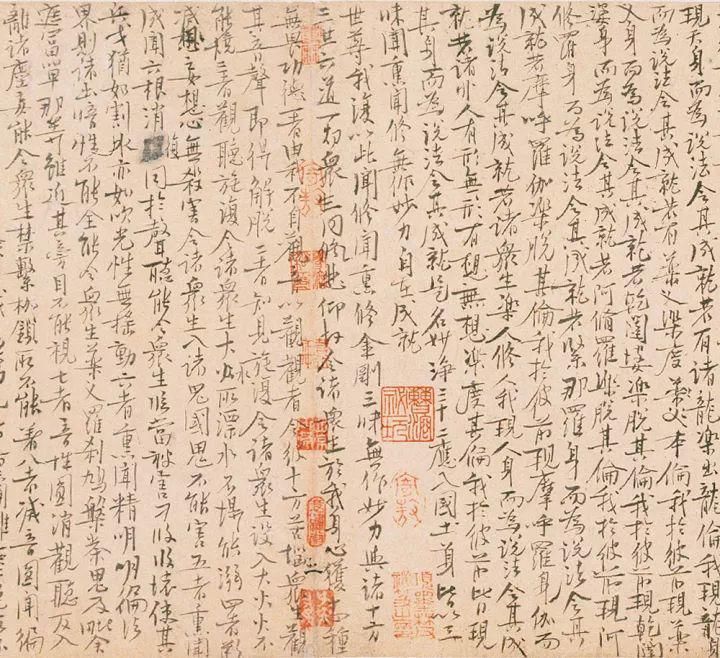 現天身而為說法令其成就若有諸龍樂出龍倫我現龍身
而為說法令其成就若有藥叉樂度本倫我於彼前現藥
叉身而為說法令其成就若乾闥婆樂脫其倫我於彼前現乾闥
婆身而為說法令其成就若阿脩羅樂脫其倫我於彼前現阿
修羅身而為說法令其成就若緊那羅身而為說法令其
成就若摩呼羅伽樂脫其倫我於彼前現摩呼羅身伽而
為說法令其成就若諸衆生樂人修人我現人身而為說法令其成
就若諸非人有形無形有想無想樂度其倫我於彼前皆現
其身而為說法令其成就是名妙淨三十二應入國土身皆以三
昧聞熏聞修無作妙力自在成就
世尊我復以此聞修聞熏修金剛三昧無作妙力與諸十方
三世六道一切衆生同悲仰故令諸衆生於我身心獲十四種
無畏功德一者由我不自觀音以觀觀者令彼十方苦惱衆生觀
其音聲即得解脫二者知見旋復令諸衆生設入大火火不
能燒三者觀聽旋復令諸衆生大水所漂水不能溺四者斷
滅妄想心無殺害令諸衆生入諸鬼國鬼不能害五者熏聞
成聞六根消復同於聲聽能令衆生臨當被害刀段段壞使其
兵戈猶如割水亦如吹光性無搖動六者熏聞精明明徧法
界則諸幽暗性不能全能令衆生藥叉羅刹鳩槃茶鬼及毗舍
遮富單那等雖近其旁目不能視七者音性圓消觀聽反入
離諸塵妄能令衆生禁繫枷鎖所不能著八者滅音圓聞徧